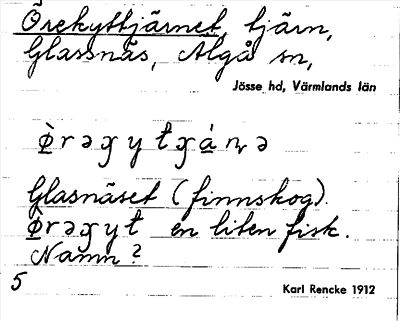 Örekyttjärnet, tjärn,
Glassnäs, Älgå sn,
Jösse hd, Värmlands län
Glasnäset (finnskog).
en liten fisk.
Namn?
5
Karl Rencke 1912